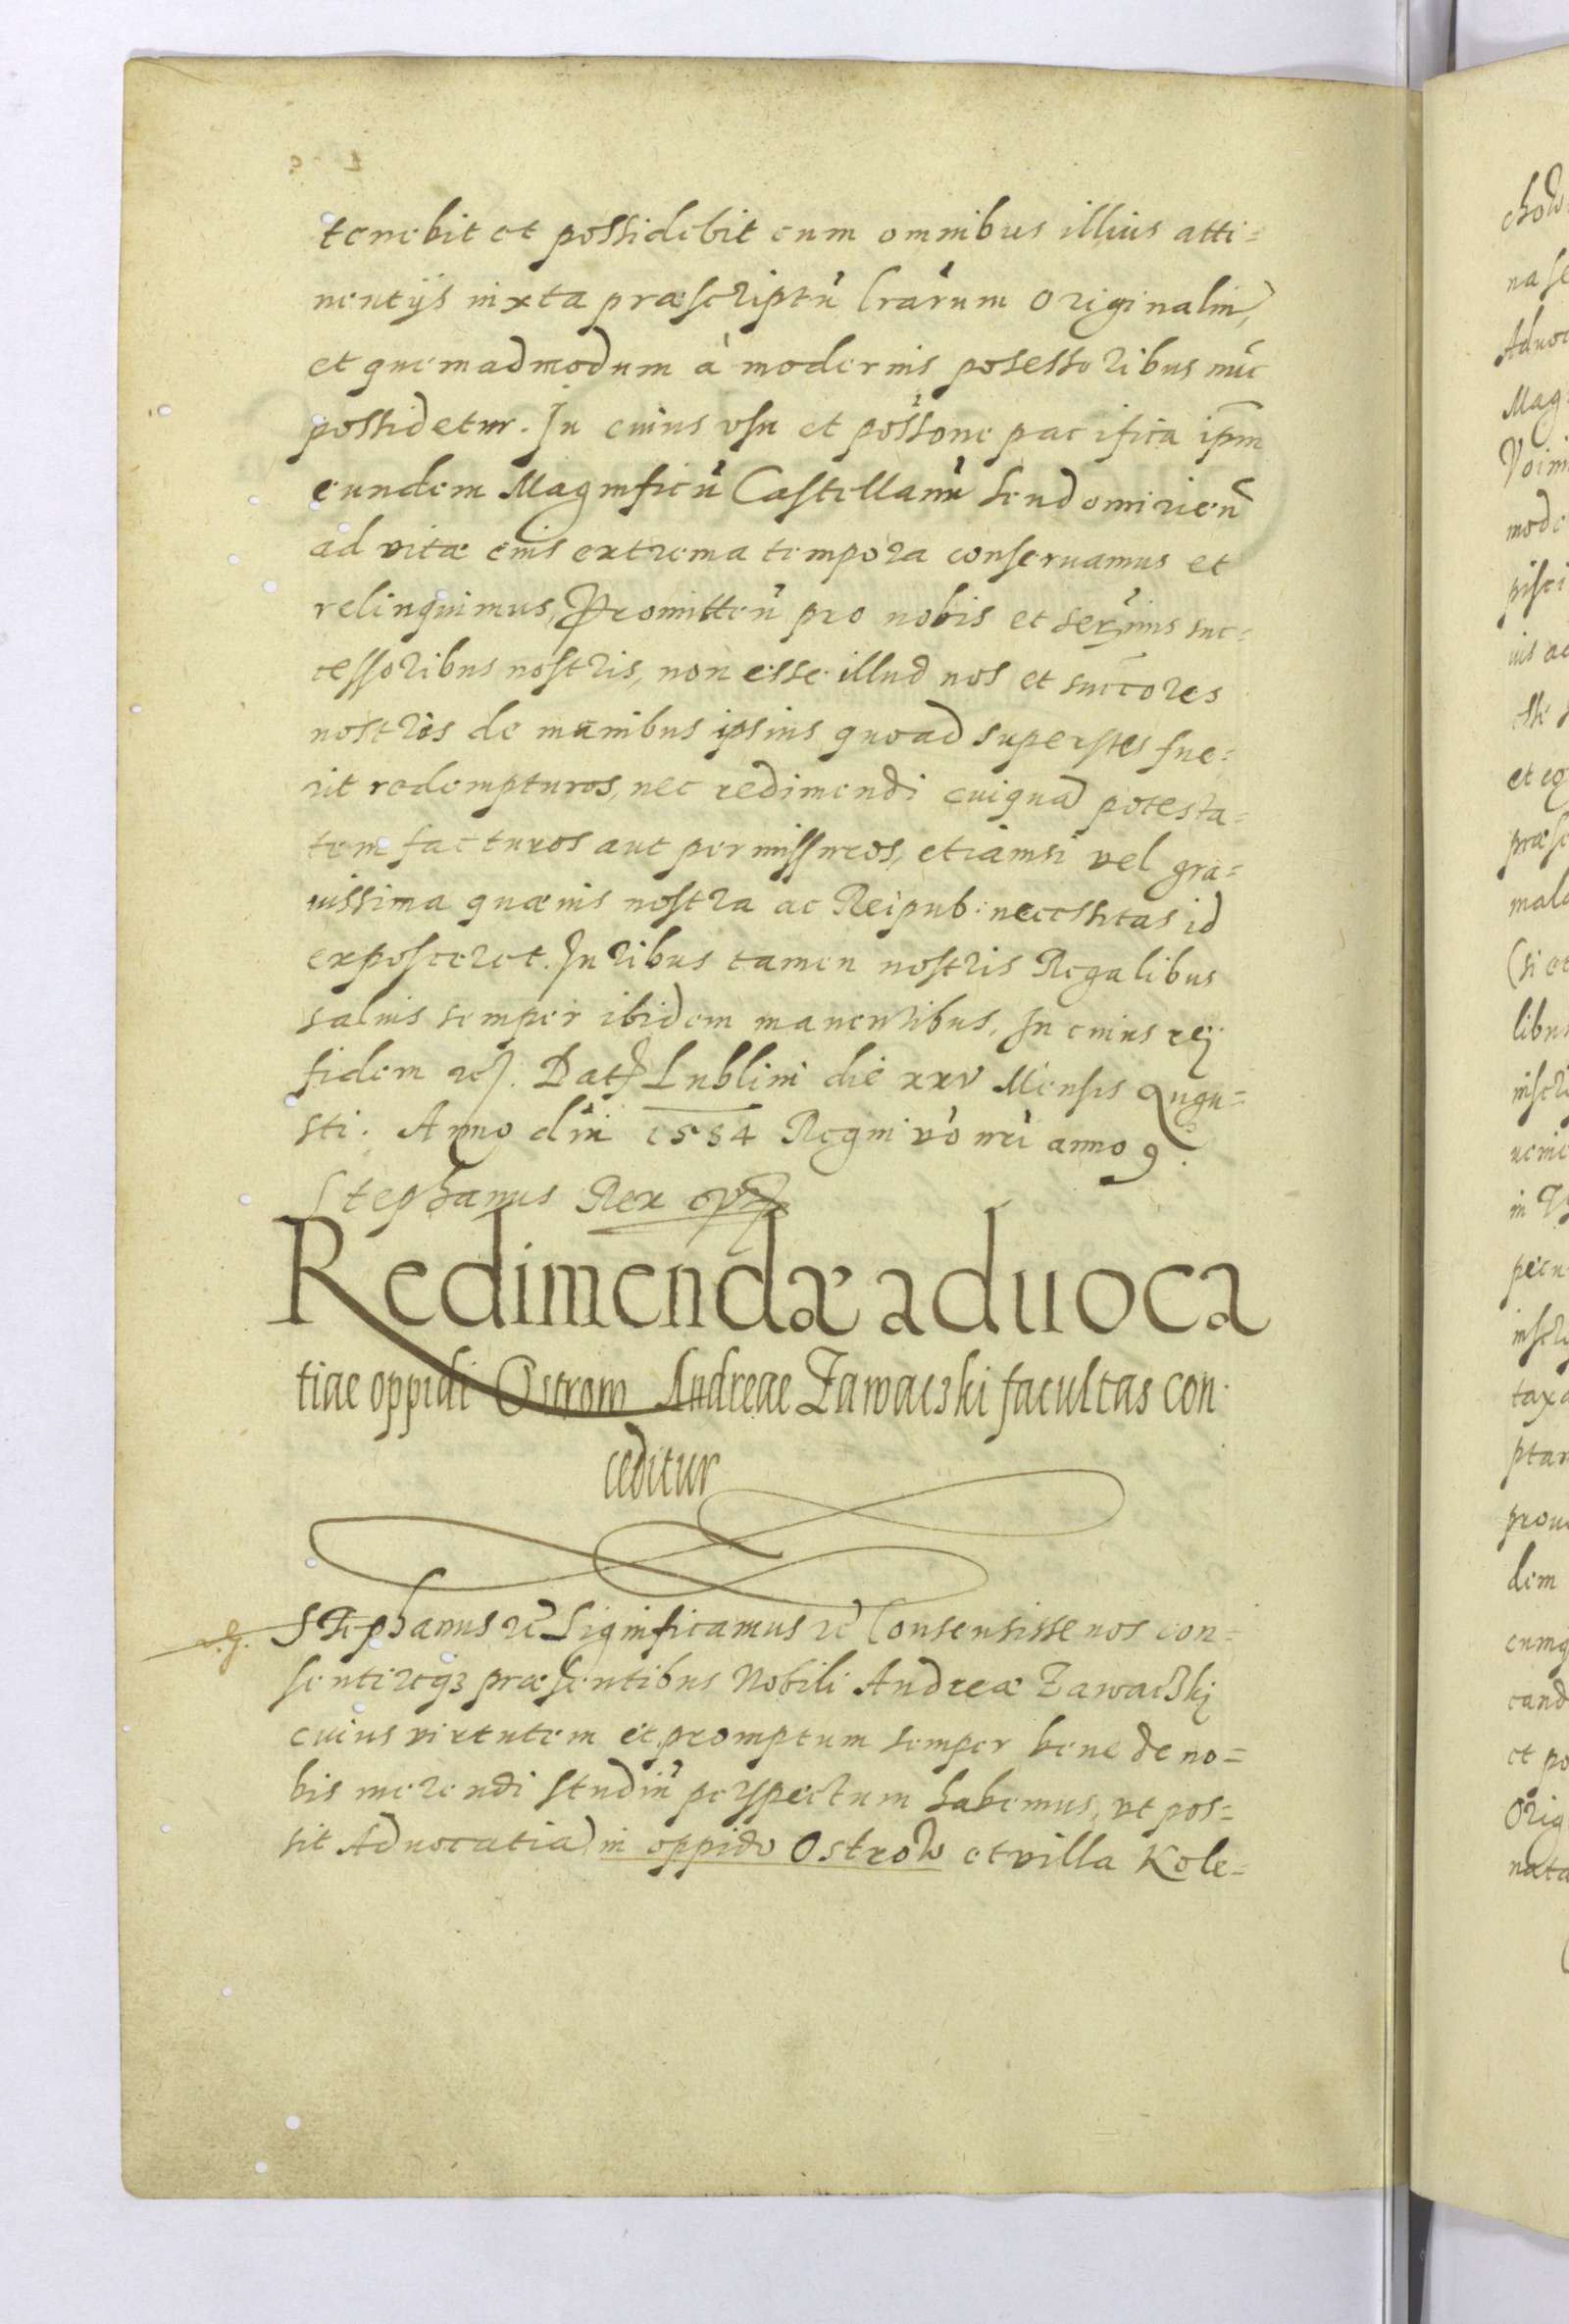 tenebit et possidebit cum omnibus illius atti=
nentijs iuxta præscriptũ l̃rarum Originaliũ,
et quemadmodum à modernis possessoribus nũc
possidetur. In cuius vsu et poss̃one pacifica ip̃m
eundem Magnificũ Castellanũ Sendomirieñ
ad vitæ eius extrema tempora conseruamus et
relinquimus, Promitteñ pro nobis et Ser̃mis suc=
cessoribus nostris, non esse illud nos et succ̃ores
nostros de manibus ipsius quoad superstes fue=
rit redempturos, nec redimendi cuiquã potesta=
tem facturos aut permissuros, etiamsi vel gra=
uissima quæuis nostra ac Reipub: necessitas id
exposceret. Iuribus tamen nostris Regalibus
saluis semper ibidem manentibus. In cuius rej
fidem &c. Dat Lublini die xxv Mensis Augu=
sti. Anno dñi 1584 Regni vò nr̃i anno 9.
Stephanus Rex
Redimendæ aduoca
tiae oppidi Ostrow Andreae Zawaczki facultas con
ceditur
Stephanus &c Significamus &c Consensisse nos con=
sentireqȝ præsentibus Nobili Andreæ Zawaczkj
cuius virtutem et promptum semper bene de no=
bis merendi studiũ perspectum habemus, vt pos=
sit Aduocatiã in oppido Ostrow et villa Kole=